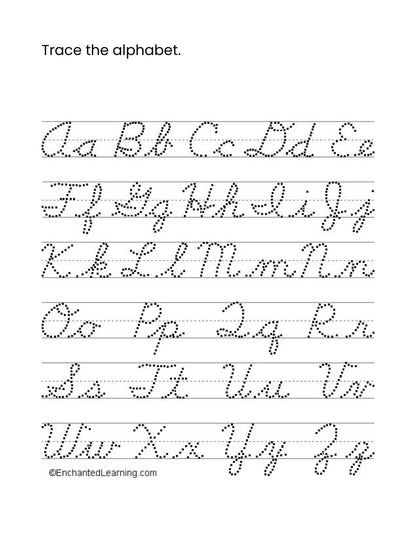 Trace the alphabet.
Aa Bb Cc Dd Ee
Ff Gg Hh Ii Jj
Kk Ll Mm Nn
Oo Pp Qq Rr
Ss Tt Uu Vv
Ww Xx Yy Zz
©EnchantedLearning.com